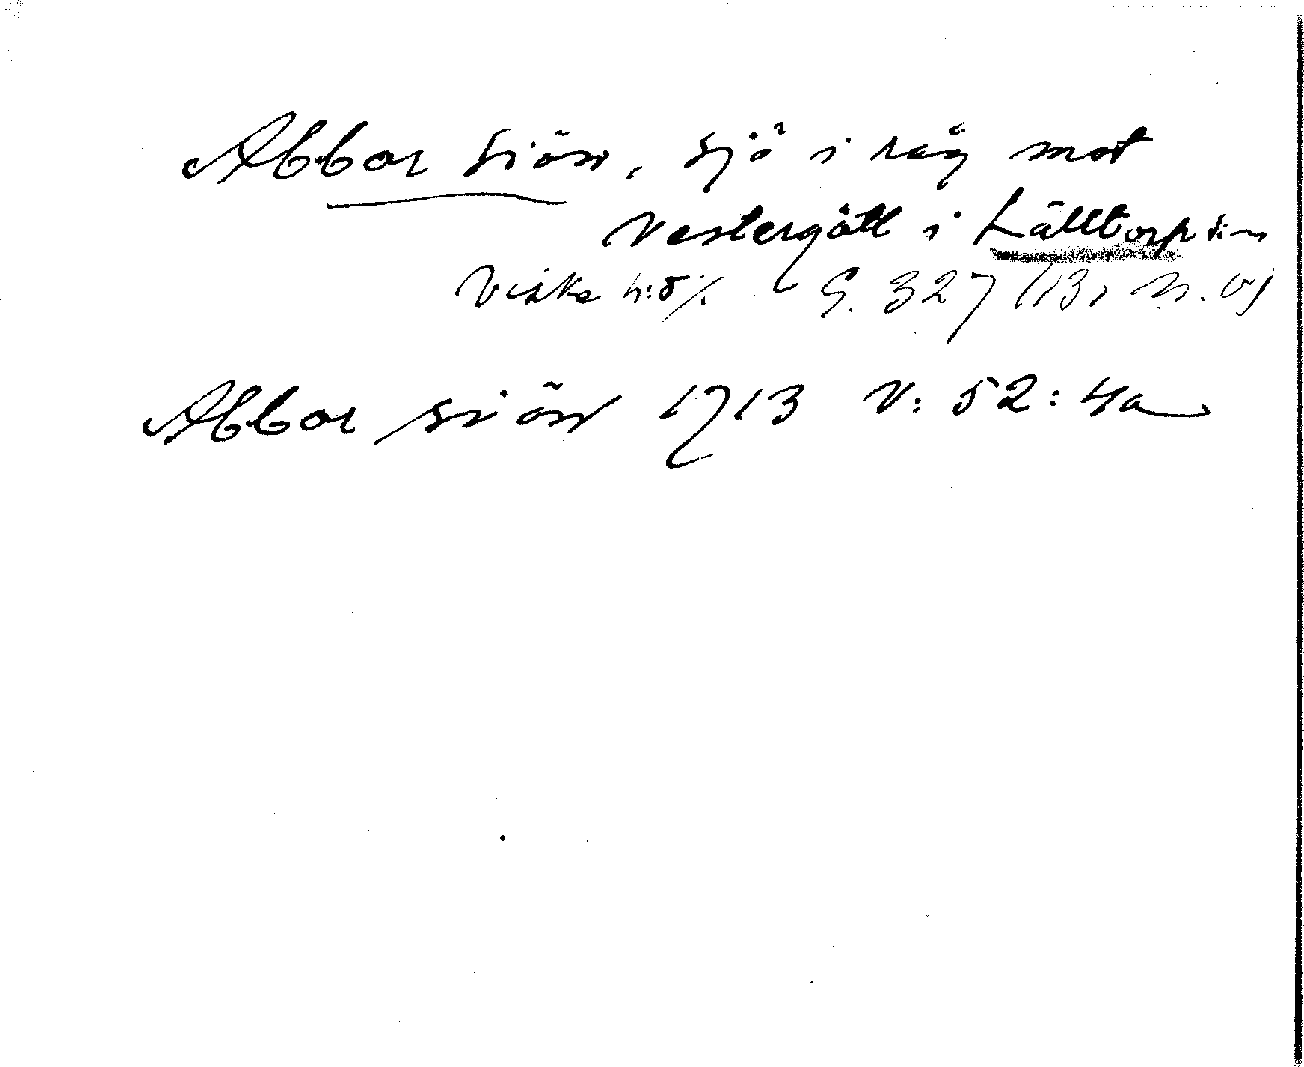 Abbor siön, sjö i råg mot
Vestergötl i Källtorp s:n
Viske h:d G. 327 (13, N. O)
Abbor siön 1713 V: 52: 4a